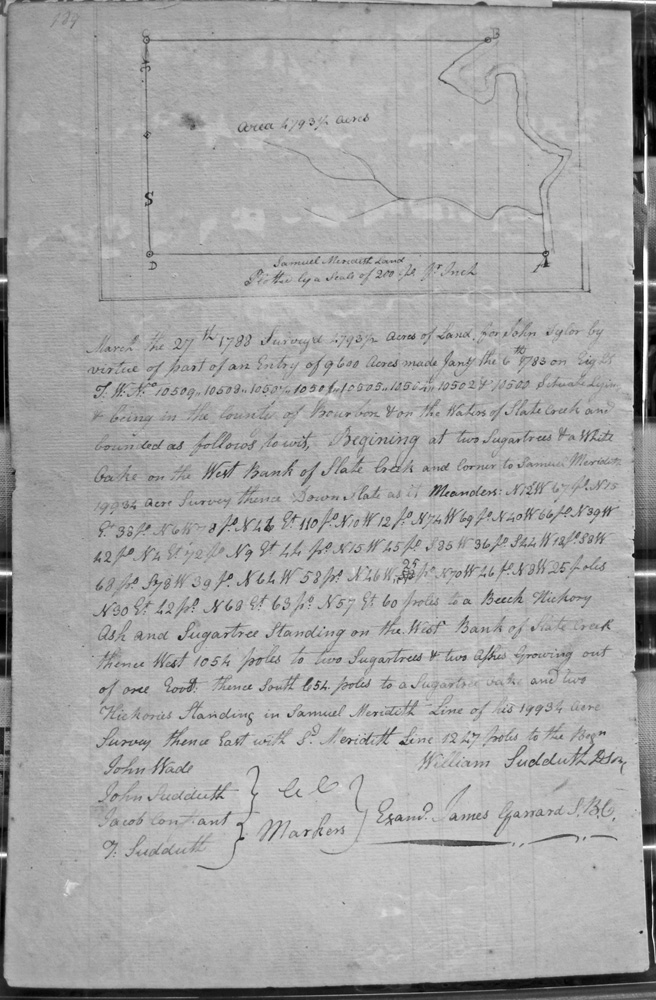 139
C
B
Area 4793½ Acres
S
D
A
Samuel Meridith Land
by a Scale of 200 pr Inch
March the 27th 1788 Survey'd 4793½ Acres of Land for John Tylor by
virtue of part of an Entry of 9600 Acres made Jany the 6th 1783 on Eight
T. W. No 10509,, 10508,, 10507,, 10505,, 10504,, 10502 & 10500 Situate Lying
& being in the County of Bourbon & on the Waters of Slate Creek and
bounded as follows towit, Begining at two Sugartrees & a White
Oake on the West Bank of Slate Creek and Corner to Samuel Meridith
19934 Acre Survey thence Down Slate as it Meanders: N12W 67 po N15
Et 38 po N6W 78 po N42 Et 110 po N10W 12 po N74W 69 po N40W 66 po N39W
42 po N4 Et 72 po N9 Et 44 po N15W 45 po S35W 36 po S44W 18 po S8W
68 po S78W 39 po N64W 58 po N46W 25 po N70W 46 po N8W 25 poles
N30 Et 42 po N68 Et 63 po N57 Et 60 poles to a Beech Hickory
Ash and Sugartree Standing on the West Bank of Slate Creek
thence West 1054 poles to two Sugartrees & two Ashes Growing out
of one Root thence South 654 poles to a Sugartree oake and two
Hickories Standing in Samuel Meridith Line of his 19934 Acre
Survey thence East with Sd Meridith Line 1247 poles to the Begn
John Wade
William Sudduth
John Sudduth
C C
Jacob Constant
Markers
Examd. James Garrard S. B. C.
Sudduth